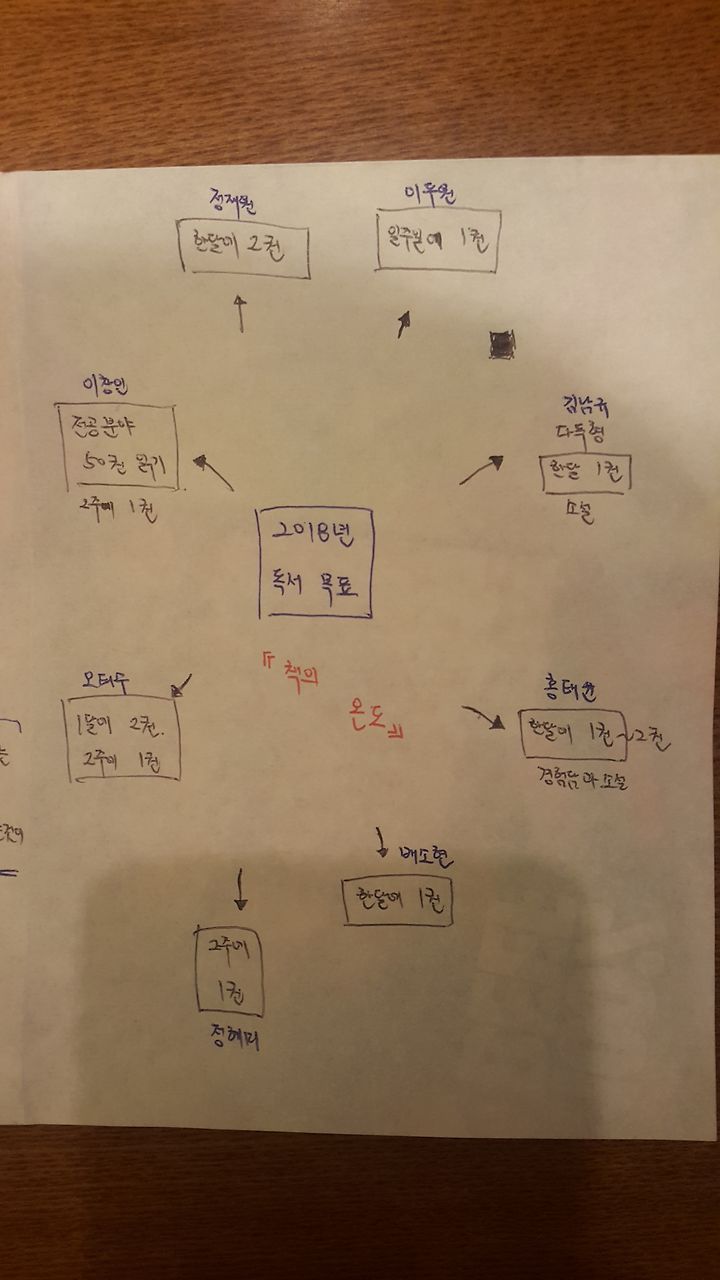 정재원
한달에 2권
이두원
일주일에 1권
이창인
전공분야
50권 읽기
2주에 1권
김남규
다독형
한달 1권
소설
2018년
독서 목표
『책의
온도』
오태두
1달에 2권.
2주에 1권
홍태윤
한달에 1권~2권
경험담 아 소설
배소현
한달에 1권
2주에
1권
정혜미